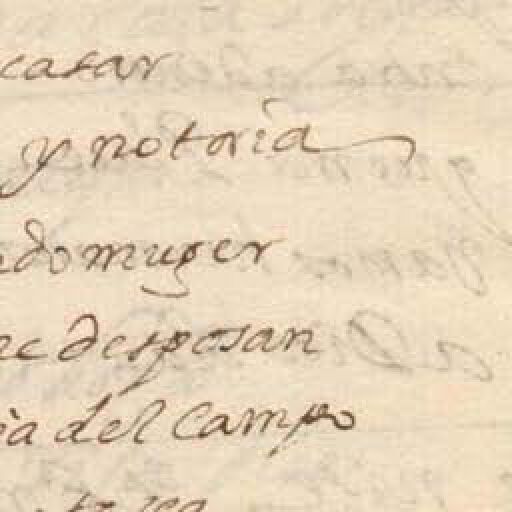 casar
y notoria
do muger
desposan
del Campo